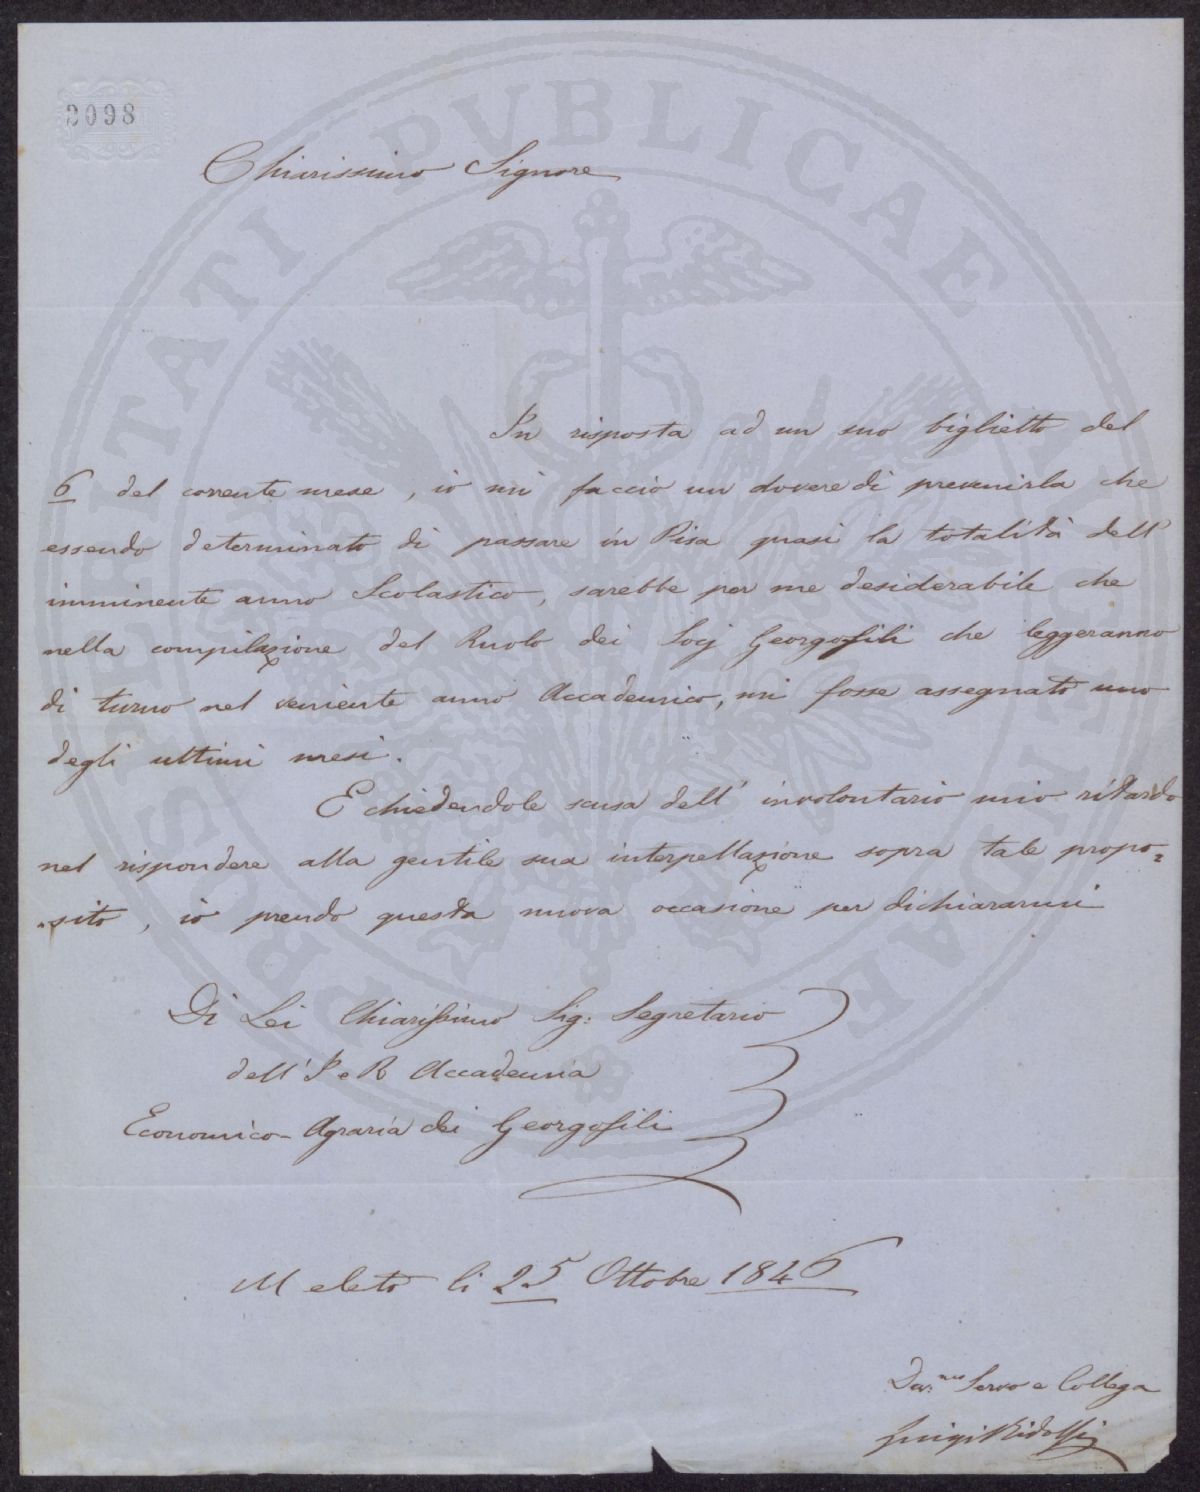 2098
Chiarissimo Signore
In risposta ad un suo biglietto del
6 del corrente mese, io mi faccio un dovere di prevenirla che
essendo determinato di passare in Pisa quasi la totalità dell'
imminente anno Scolastico, sarebbe per me desiderabile che
nella compilazione del Ruolo dei Socj Georgofili che leggeranno
di turno nel veniente anno Accademico, mi fosse assegnato uno
degli ultimi mesi.
E chiedendole scusa dell' involontario mio ritardo
nel rispondere alla gentile sua interpellazione sopra tale propo=
=sito, io prendo questa nuova occasione per dichiararmi
Di Lei Chiarissimo Sig: Segretario
dell' I e R Accademia
Economico-Agraria dei Georgofili
Meleto li 25 Ottobre 1846
Dev:mo Servo e Collega
Luigi Ridolfi
PROSPERITATI PVBLICAE AVGENDAE